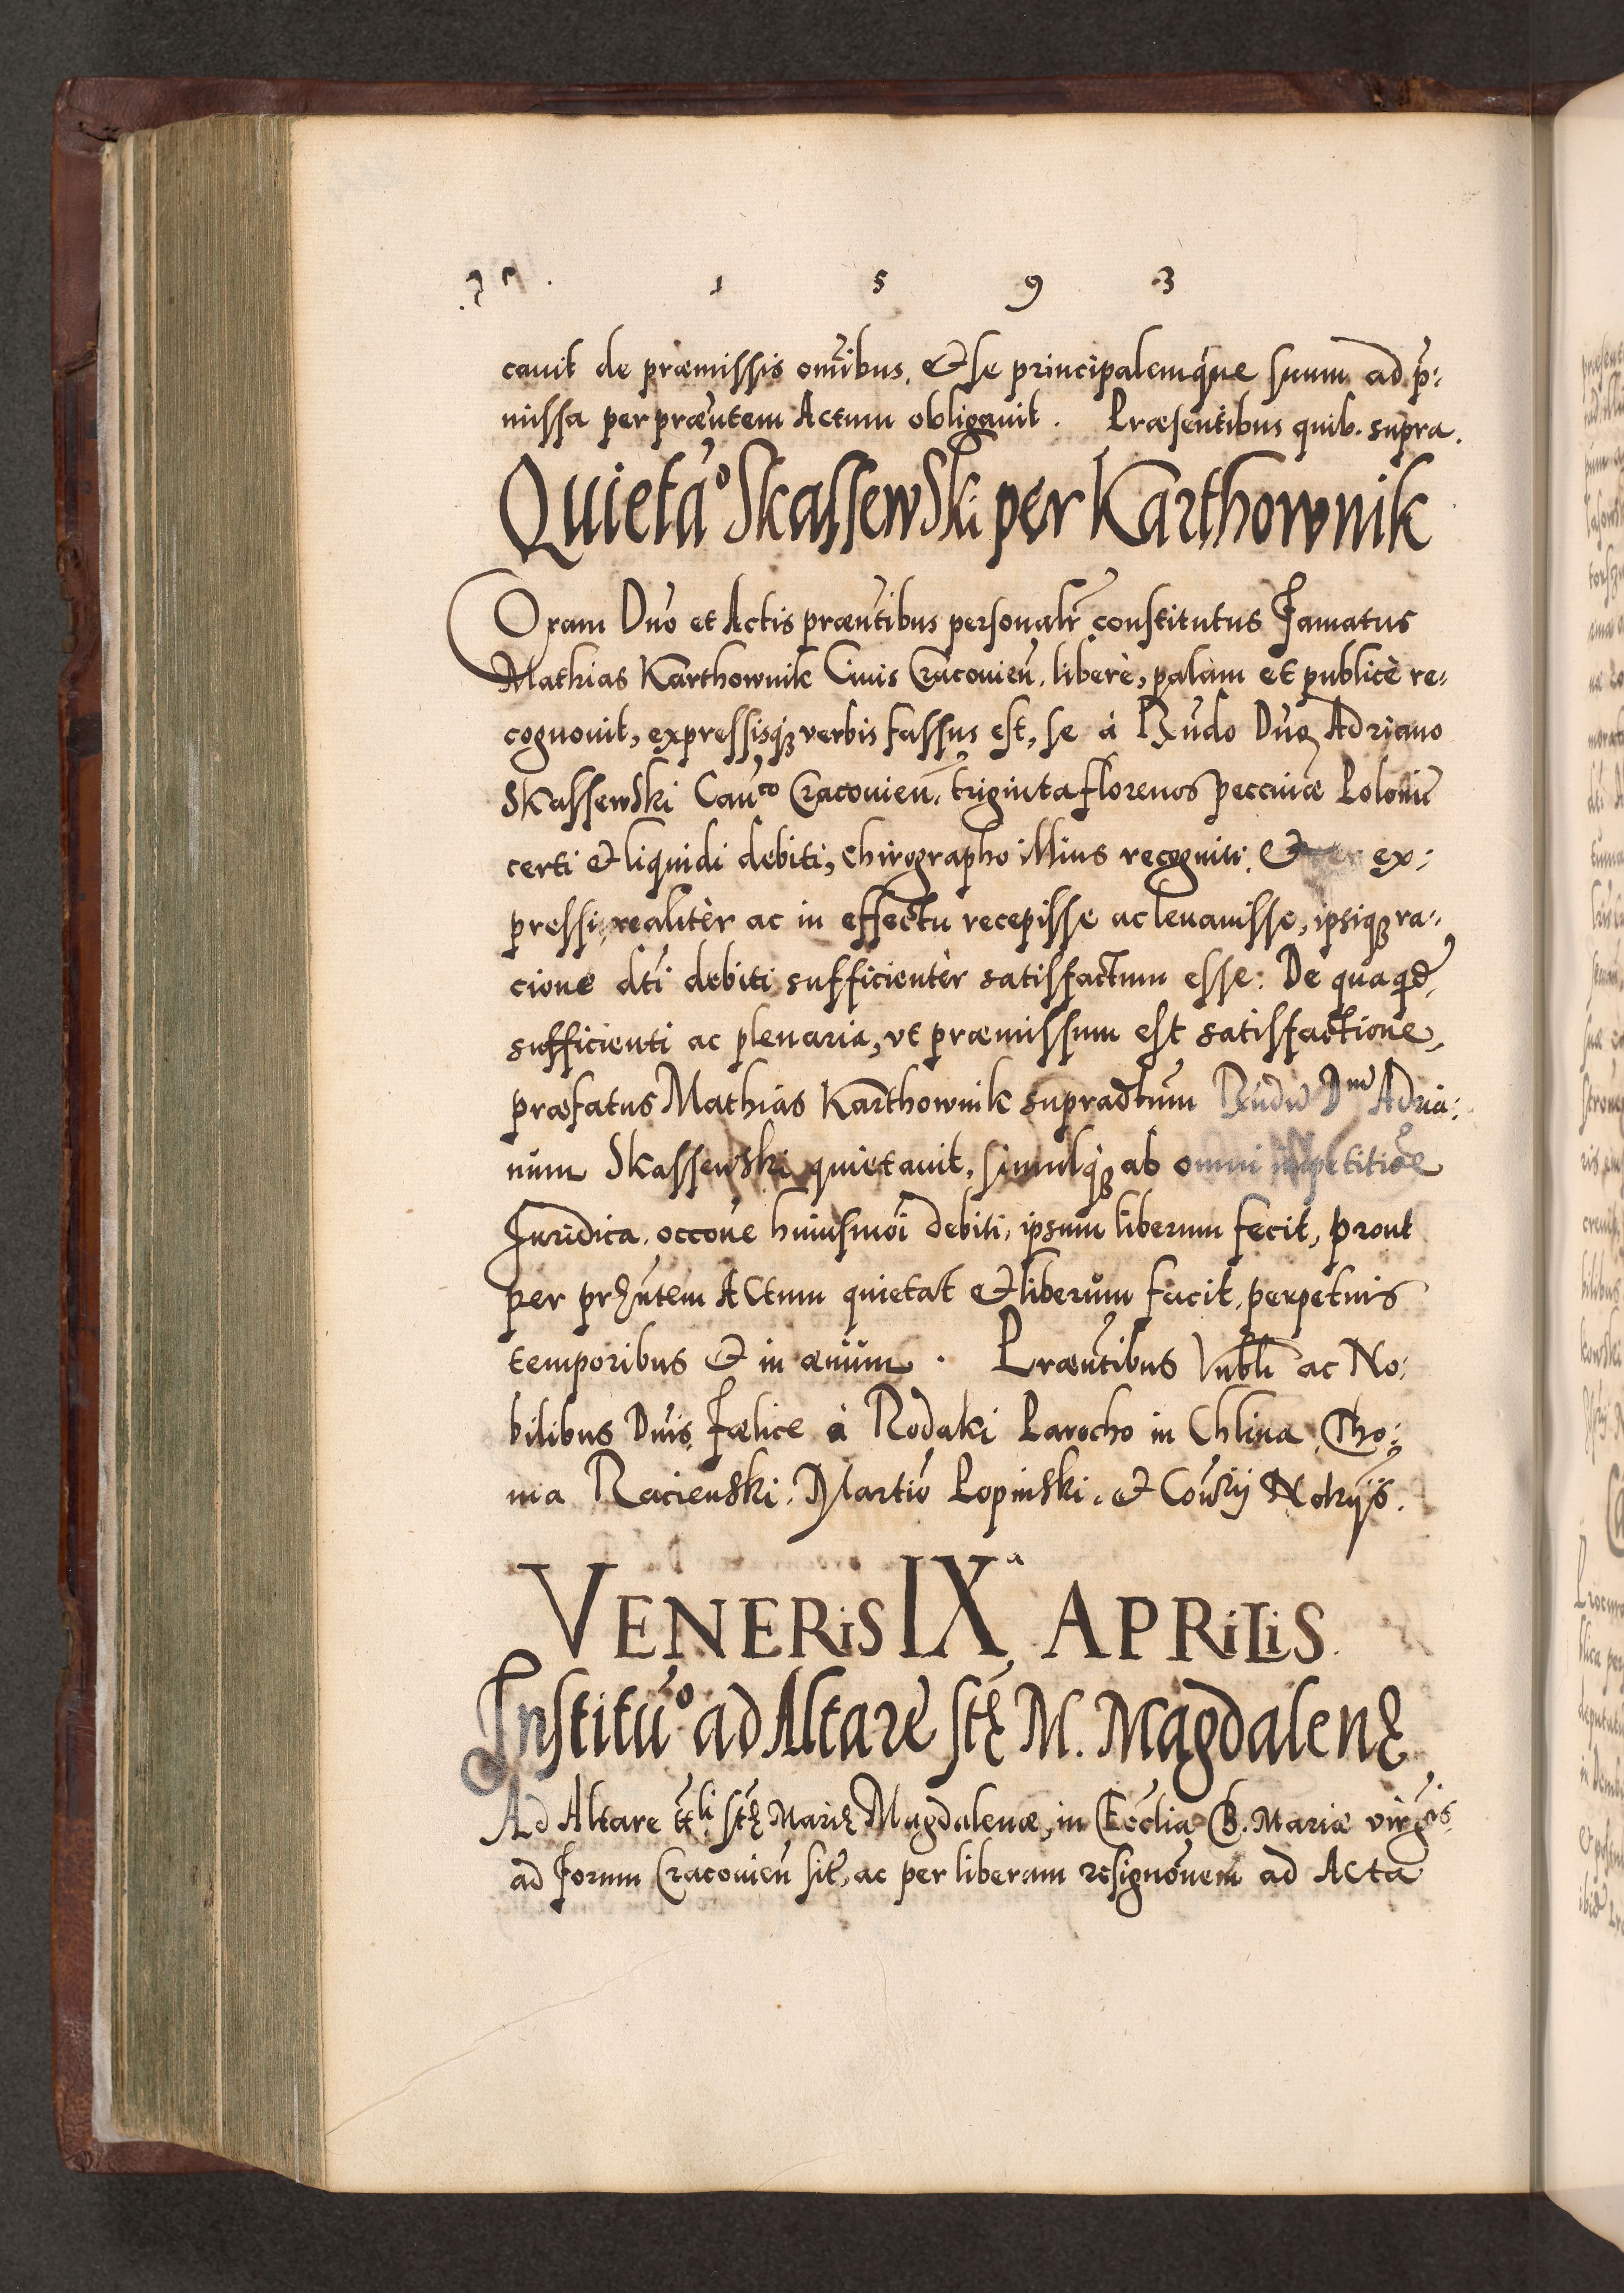 1 5 9 3
cauit de præmissis omībus, et se principalemque suum ad p̄:
missa per præñtem Actum obligauit. Præsentibus quib. supra.
Quietaō Skassewski per Karthownik
Coram Dño et Actis præñtibus personalr̄ constitutus Famatus
Mathias Karthownik Ciuis Cracouień. liberè, palàm et publicè re:
cognouit, expressisq; verbis fassus est, se à Rṅdo Dño Adriano
Skassewski Canco Cracouień. triginta florenos peccuniæ Polonić
certi et liquidi debiti, chirographo illius recogniti. Et ex:
pressi, realitèr ac in effectu recepisse ac leuauisse, ipsiq; ra:
cione dti debiti sufficientèr satisfactum esse: De qua qd̄,
sufficienti ac plenaria, vt præmissum est satisfactione,
præfatus Mathias Karthownik supradtum Rṅdū Dnū Adria:
num Skassewski quietauit, simulq; ab omni impetitiōe
Iuridica occōne huiusmoi debiti, ipsum liberum fecit, prout
per pręñtem Actum quietat et liberum facit, perpetuis
temporibus et in æuum. Præñtibus Vnbli ac No:
bilibus Dnis Fœlice à Rodaki Parocho in Chlina, Tho:
ma Racienski, Martiō Lopinski, et Coū̄rij Notrijs.
VENERIS IXa APRILIS.
Institūo ad Altare stę M. Magdalenę
Ad Altare ttli stę Marię Magdalenæ, in Ecclia B. Mariæ virgis
ad Forum Cracouień sit̄, ac per liberam resignōuem ad Acta